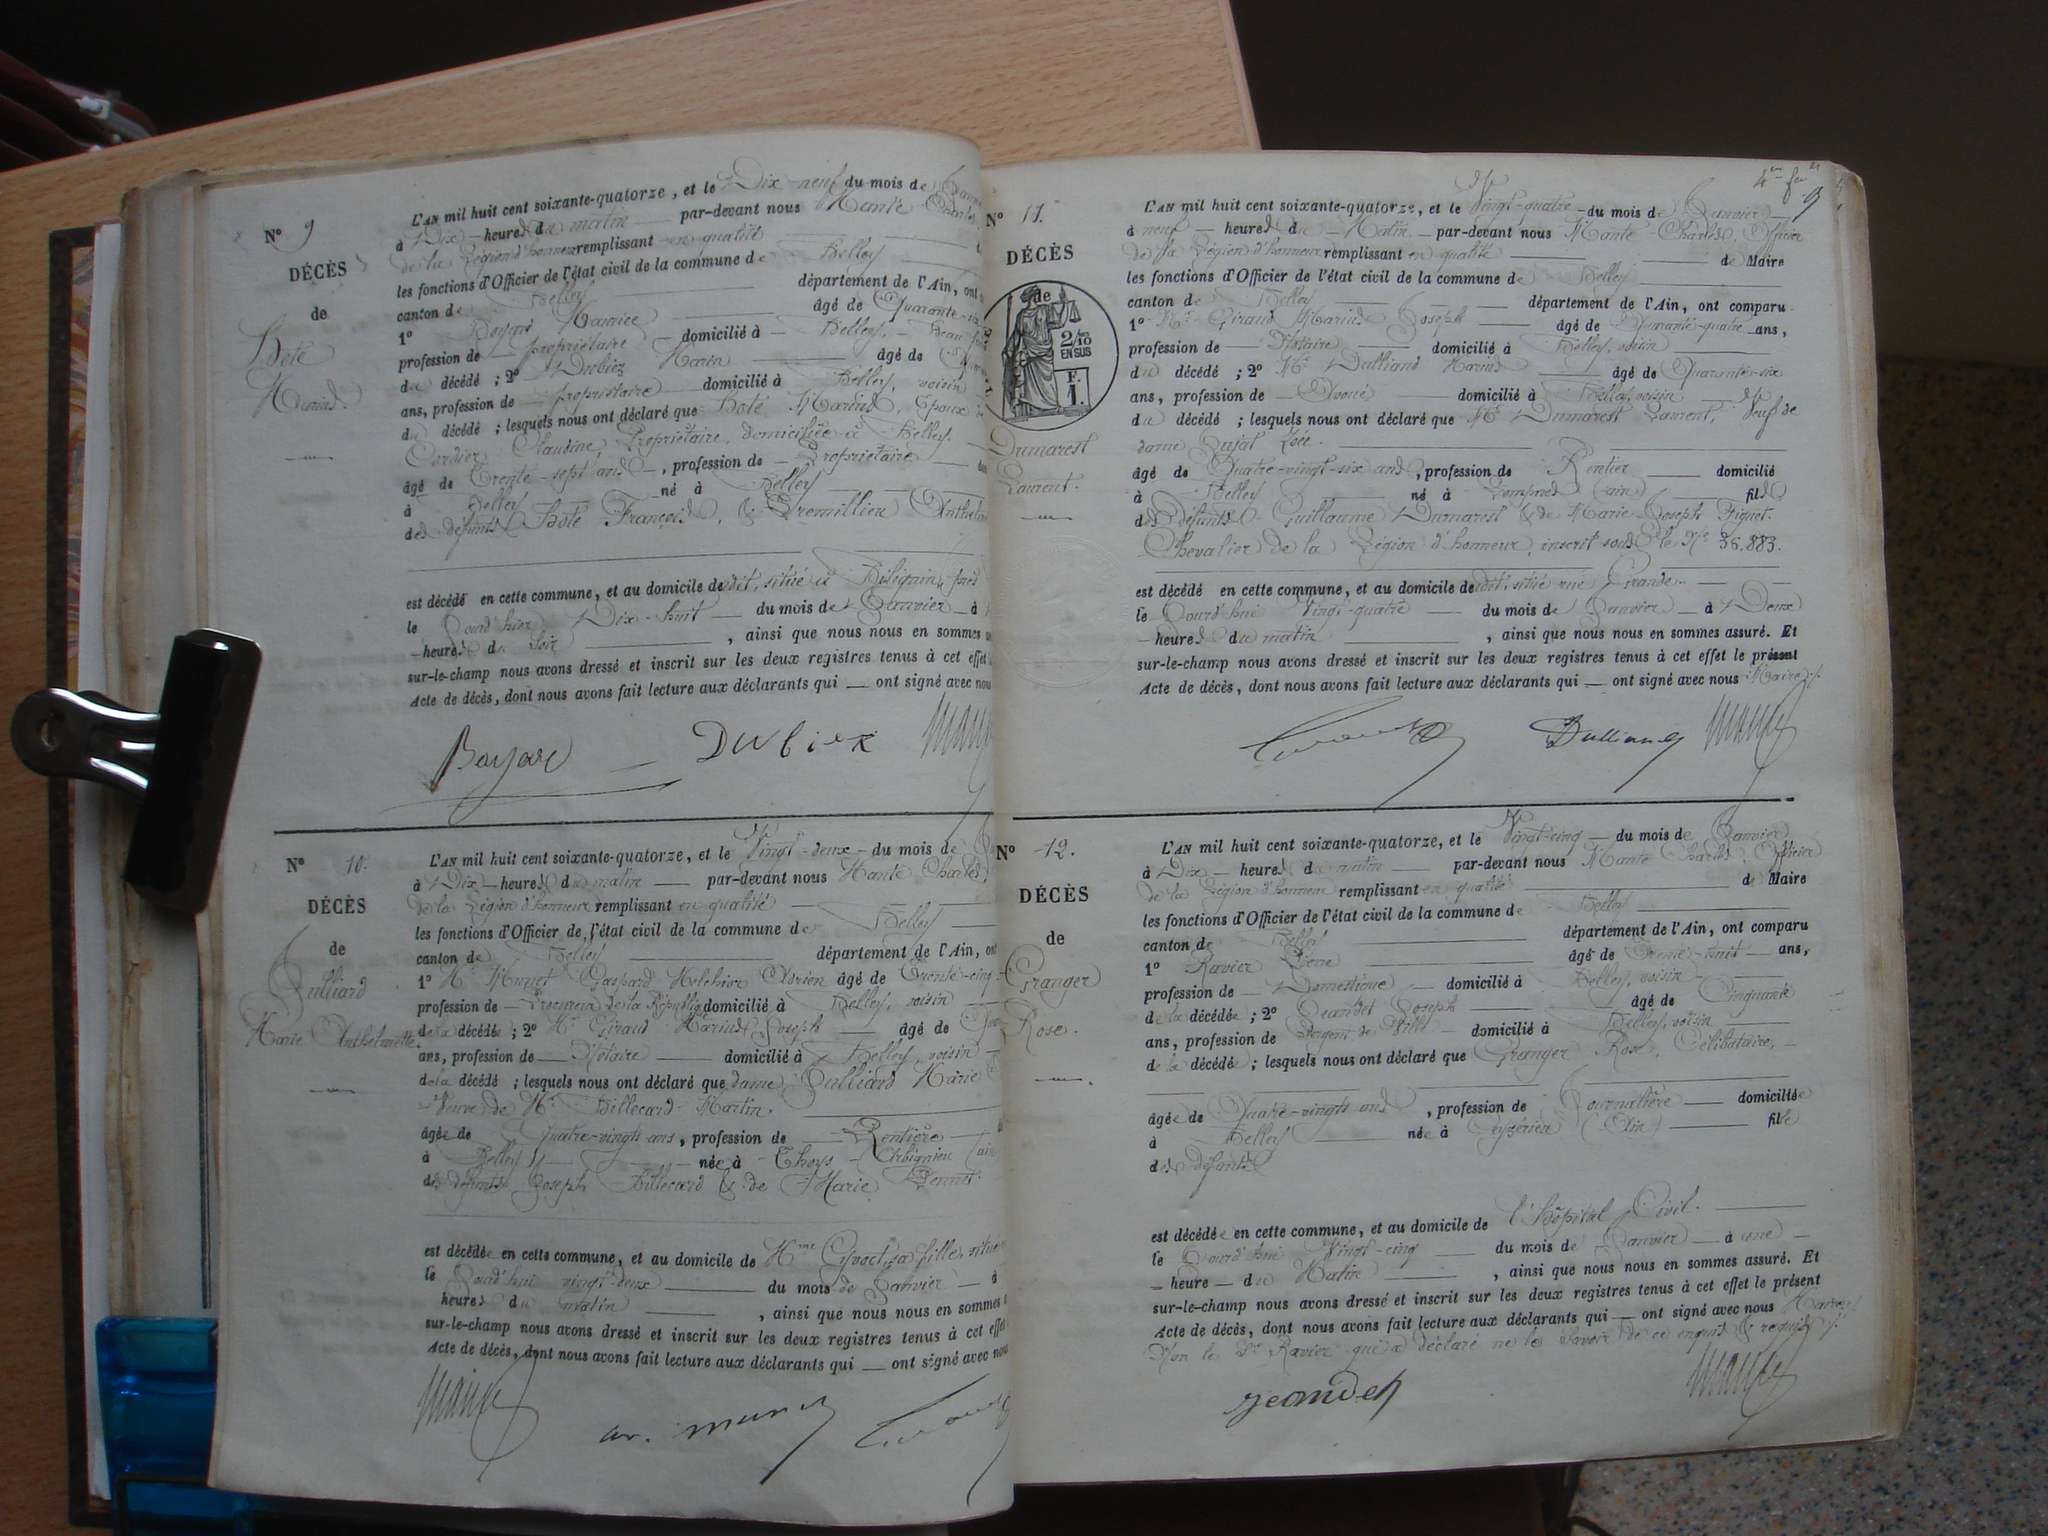 N° 9
DÉCÈS
de
Hoté
Marius.
L'AN mil huit cent soixante-quatorze, et le Dix-neuf du mois de
à Dix heures du matin par-devant nous Mante
de la Légion d'honneur remplissant en qualité
les fonctions d'Officier de l'état civil de la commune de Belley
canton de Belley département de l'Ain, ont
1° âgé de Quarante-six
profession de propriétaire domicilié à Belley,
du décédé ; 2° Dubiez Marin âgé de
ans, profession de propriétaire domicilié à Belley, voisin
du décédé ; lesquels nous ont déclaré que Hoté Marius, Epoux
Cordier Claudine, Propriétaire, domiciliée à Belley.
âgé de Trente-sept ans, profession de Propriétaire
à Belley né à Belley
des défunts Hoté François, & Gremillieu
est décédé en cette commune, et au domicile de dit, situé à Bilignin, près
le Jourd'hier Dix-huit du mois de Janvier à
heures du soir, ainsi que nous nous en sommes
sur-le-champ nous avons dressé et inscrit sur les deux registres tenus à cet effet
Acte de décès, dont nous avons fait lecture aux déclarants qui ont signé avec nous
Dubiex
N° 10.
DÉCÈS
de
Julliard
Marie Anthelmette
L'AN mil huit cent soixante-quatorze, et le Vingt-deux du mois de
à Dix heures du matin par-devant nous Mante Charles,
de la Légion d'honneur remplissant en qualité
les fonctions d'Officier de l'état civil de la commune de Belley
canton de Belley département de l'Ain, ont
1° Mr Gaspard Melchior Adrien âgé de Trente-cinq
profession de Procureur de la République domicilié à Belley, voisin
de la décédée ; 2° Mr Giraud Marius Joseph âgé de
ans, profession de Notaire domicilié à Belley, voisin
de la décédé ; lesquels nous ont déclaré que dame Julliard Marie
Veuve de Mr Billecard Martin.
âgée de Quatre-vingts ans, profession de Rentière
à Belley née à Thoys Arbignieu
des défunts Joseph Billecard & de Marie
est décédée en cette commune, et au domicile de Mme sa fille, située
le Jourd'hui vingt-deux du mois de Janvier à
heures du matin, ainsi que nous nous en sommes
sur-le-champ nous avons dressé et inscrit sur les deux registres tenus à cet effet
Acte de décès, dont nous avons fait lecture aux déclarants qui ont signé avec nous
N° 11.
DÉCÈS
de
2/10
EN SUS
F.
1.
Dumarest
Laurent.
9
L'AN mil huit cent soixante-quatorze, et le Vingt-quatre du mois de Janvier
à neuf heures du Matin par-devant nous Mante Charles, Officier
de la Légion d'honneur remplissant en qualité de Maire
les fonctions d'Officier de l'état civil de la commune de Belley
canton de Belley département de l'Ain, ont comparu
1° Mr Giraud Marius Joseph âgé de Quarante-quatre ans,
profession de Notaire domicilié à Belley, voisin
du décédé ; 2° Mr Dulliand Marius âgé de Quarante-six
ans, profession de Avoué domicilié à Belley, voisin
du décédé ; lesquels nous ont déclaré que Mr Dumarest Laurent, Veuf de
dame Zoée.
âgé de Quatre-vingt-six ans, profession de Rentier domicilié
à Belley né à Lompnes (ain) fils
des Défunts Guillaume Dumarest & de Marie-Joseph
Chevalier de la Légion d'honneur, inscrit sous le No 36.883.
est décédé en cette commune, et au domicile de dit, situé rue Grande.
le Jourd'hui Vingt-quatre du mois de Janvier à Deux
heures du matin, ainsi que nous nous en sommes assuré. Et
sur-le-champ nous avons dressé et inscrit sur les deux registres tenus à cet effet le présent
Acte de décès, dont nous avons fait lecture aux déclarants qui ont signé avec nous Maire
Dulliand
N° 12.
DÉCÈS
de
Granger
Rose.
L'AN mil huit cent soixante-quatorze, et le Vingt-cinq du mois de Janvier
à Dix heures du matin par-devant nous Mante Charles Officier
de la Légion d'honneur remplissant en qualité de Maire
les fonctions d'Officier de l'état civil de la commune de Belley
canton de Belley département de l'Ain, ont comparu
1° Ravier Pierre âgé de Trente-huit ans,
profession de Domestique domicilié à Belley, voisin
de la décédée ; 2° Jeandet Joseph âgé de Cinquante
ans, profession de Sergent de Ville domicilié à Belley, voisin
de la décédée ; lesquels nous ont déclaré que Granger Rose, Célibataire,
âgée de Quatre-vingts ans, profession de Journalière domiciliée
à Belley née à Ceyzérieu (Ain) fille
des défunts
est décédée en cette commune, et au domicile de l'Hôpital Civil.
le Jourd'hui Vingt-cinq du mois de Janvier à une
heure du Matin, ainsi que nous nous en sommes assuré. Et
sur-le-champ nous avons dressé et inscrit sur les deux registres tenus à cet effet le présent
Acte de décès, dont nous avons fait lecture aux déclarants qui ont signé avec nous Maire,
Non le Sr Ravier qui a déclaré ne le savoir de ce enquis & requis
Jeandet